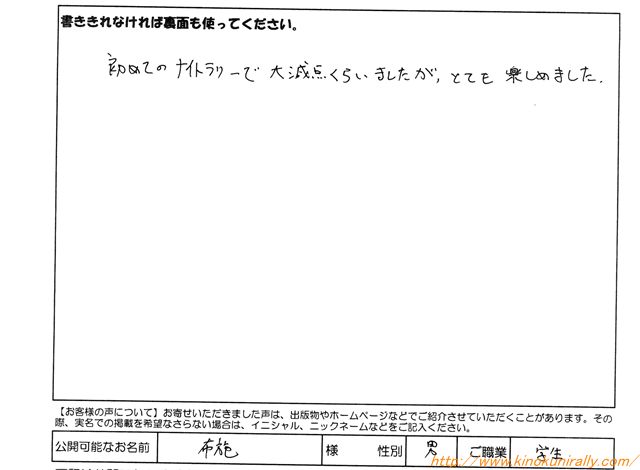 書ききれなければ裏面も使ってください。
初めてのナイトラリーで大減点くらいましたが,とても楽しめました.
【お客様の声について】お寄せいただきました声は、出版物やホームページなどでご紹介させていただくことがあります。その
際、実名での掲載を希望なさらない場合は、イニシャル、ニックネームなどをご記入ください。
公開可能なお名前 布施 様 性別 男 ご職業 学生
http://www.kinokunirally.com/